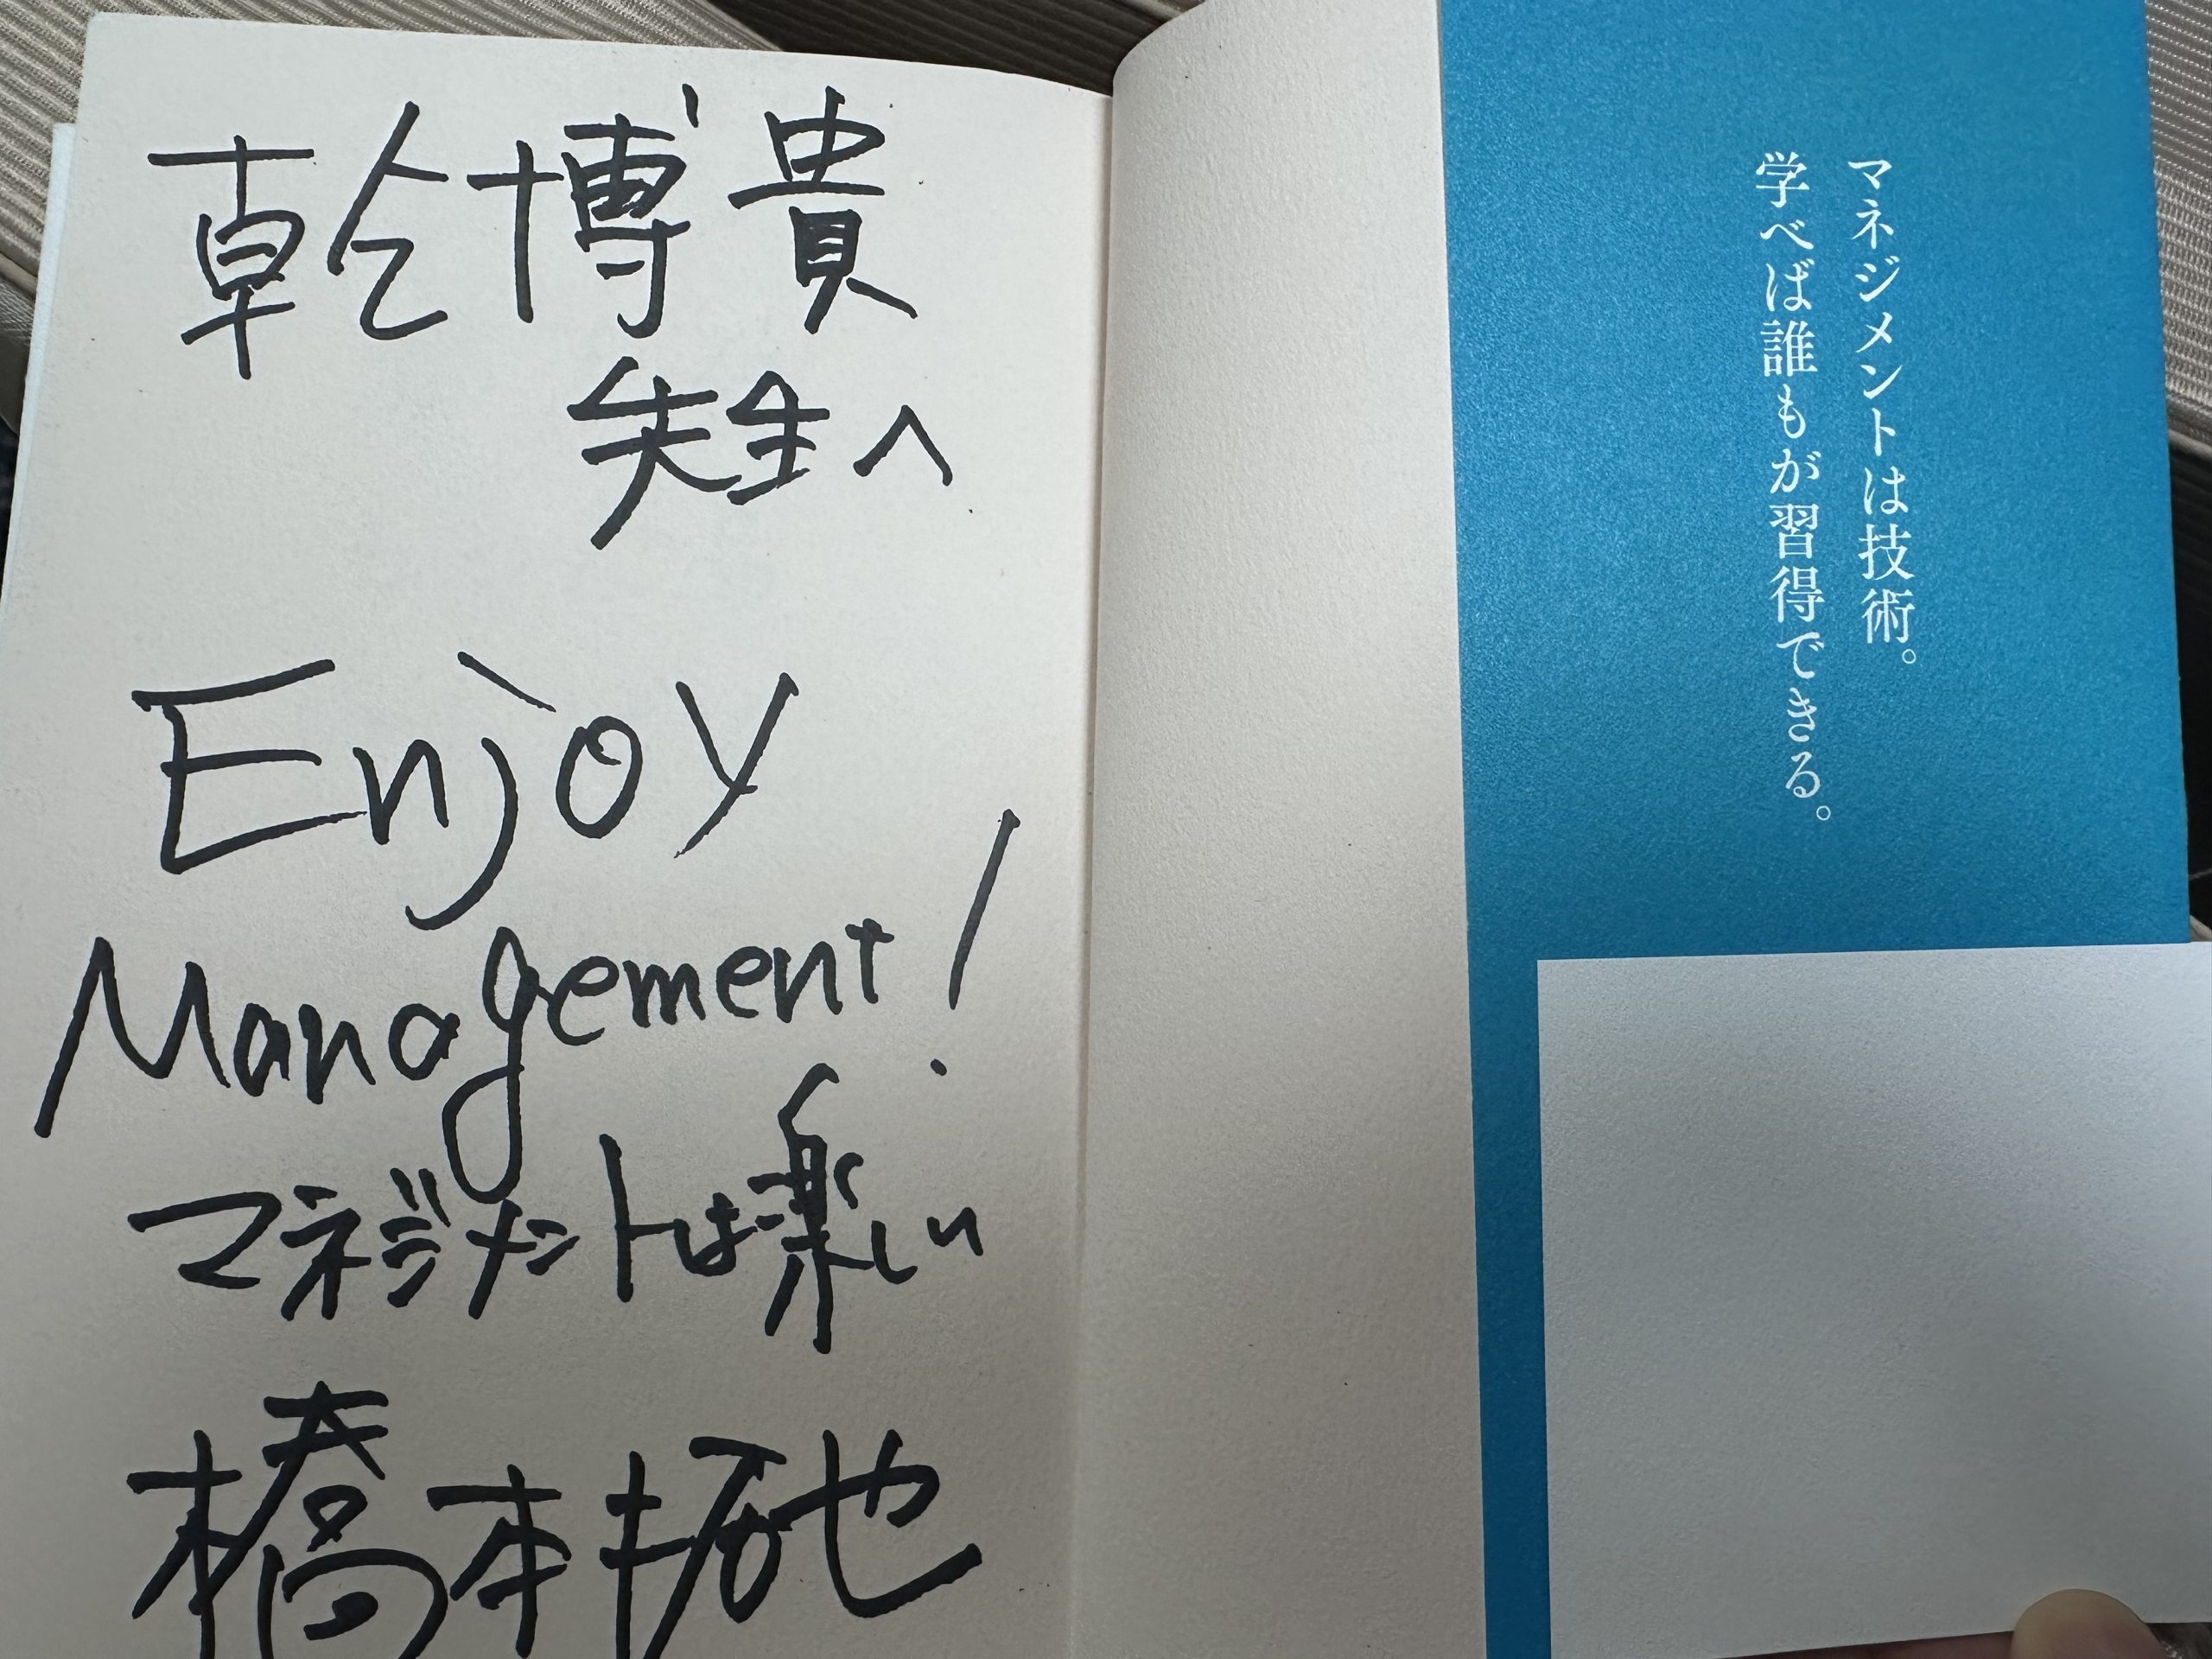 乾博貴
先生へ
Enjoy
Management!
マネジメントは楽しい
橋本拓也
マネジメントは技術。
学べば誰もが習得できる。